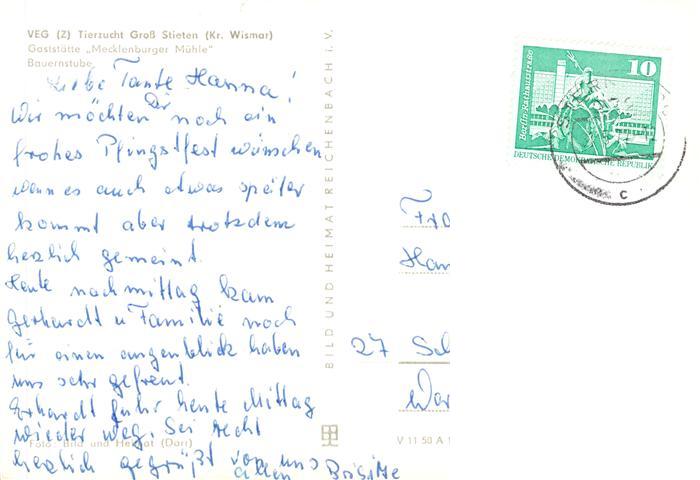 VEG (Z) Tierzucht Groß Stieten (Kr. Wismar)
Gaststätte „Mecklenburger Mühle"
Bauernstube
Liebe Tante Hanna!
Wir möchten Dir noch ein
frohes Pfingstfest wünschen
wenn es auch etwas später
kommt aber trotzdem
herzlich gemeint.
Heute nachmittag kam
Gerhardt u Familie noch
für einen augenblick haben
uns sehr gefreut.
Erhardt fuhr heute Mittag
wieder weg. Sei recht
herzlich gegrüßt von uns
allen Brigitte
Foto: Bild und Heimat (Dorr)
BILD UND HEIMAT REICHENBACH i. V.
V 11 50 A 1
10
Berlin, Rathausstraße
DEUTSCHE DEMOKRATISCHE REPUBLIK
c
Fra
Han
27 Sch
War